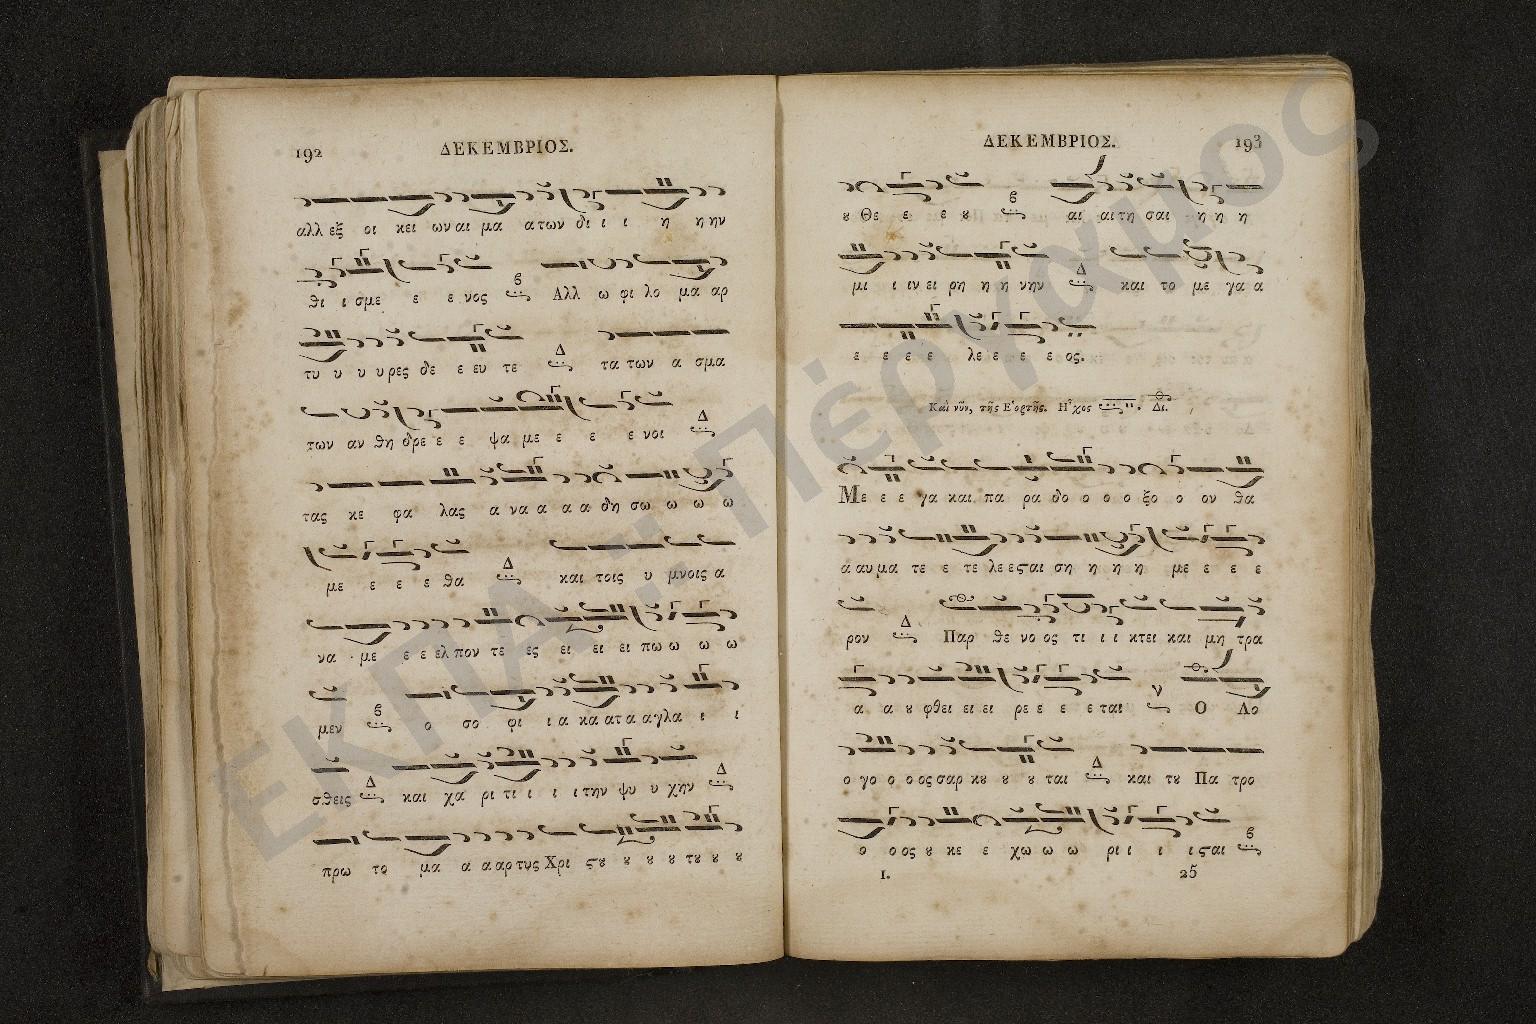 192 ΔΕΚΕΜΒΡΙΟΣ.
αλλ εξ οι κει ων αι μα α των δι ι ι η η ην
θι ι σμε ε ε νος Αλλ ω φι λο μα αρ
τυ υ υ υ ρες δε ε ευ τε τα των α σμα
των αν θη δρε ε ε ψα με ε ε ε νοι
τας κε φα λας α να α α α δη σω ω ω ω
με ε ε ε θα και τοις υ μνοις α
να με ε ε ελ πον τε ες ει ει ει πω ω ω ω
μεν ο σο φι ι α κα ατ α α γλα ι ι
σθεις και χα ρι τι ι ι ι την ψυ υ χην
πρω το μα α α αρ τυς Χρι ςȣ ȣ ȣ ȣ τȣ ȣ ȣ
ΔΕΚΕΜΒΡΙΟΣ. 193
ȣ Θε ε ε ȣ αι αι τη σαι η η η
μι ι ιν ει ρη η η νην και το με γα α
ε ε ε ε λε ε ε ε ος.
Καὶ νῦν, τῆς Ἑορτῆς. Ἦχος Δι.
Με ε ε γα και πα ρα δο ο ο ο ξο ο ον θα
α αυ μα τε ε τε λε εςται ση η η η με ε ε ε
ρον Παρ θε νο ος τι ι ι κτει και μη τρα
α α ȣ φθει ει ει ρε ε ε ε ται Ο Λο
ο γο ο ο ος σαρ κȣ ȣ ȣ ται και τȣ Πα τρο
ο ο ος ȣ κε ε χω ω ω ρι ι ι ιςται
I. 25
ΕΚΠΑ .: Πέργαμος